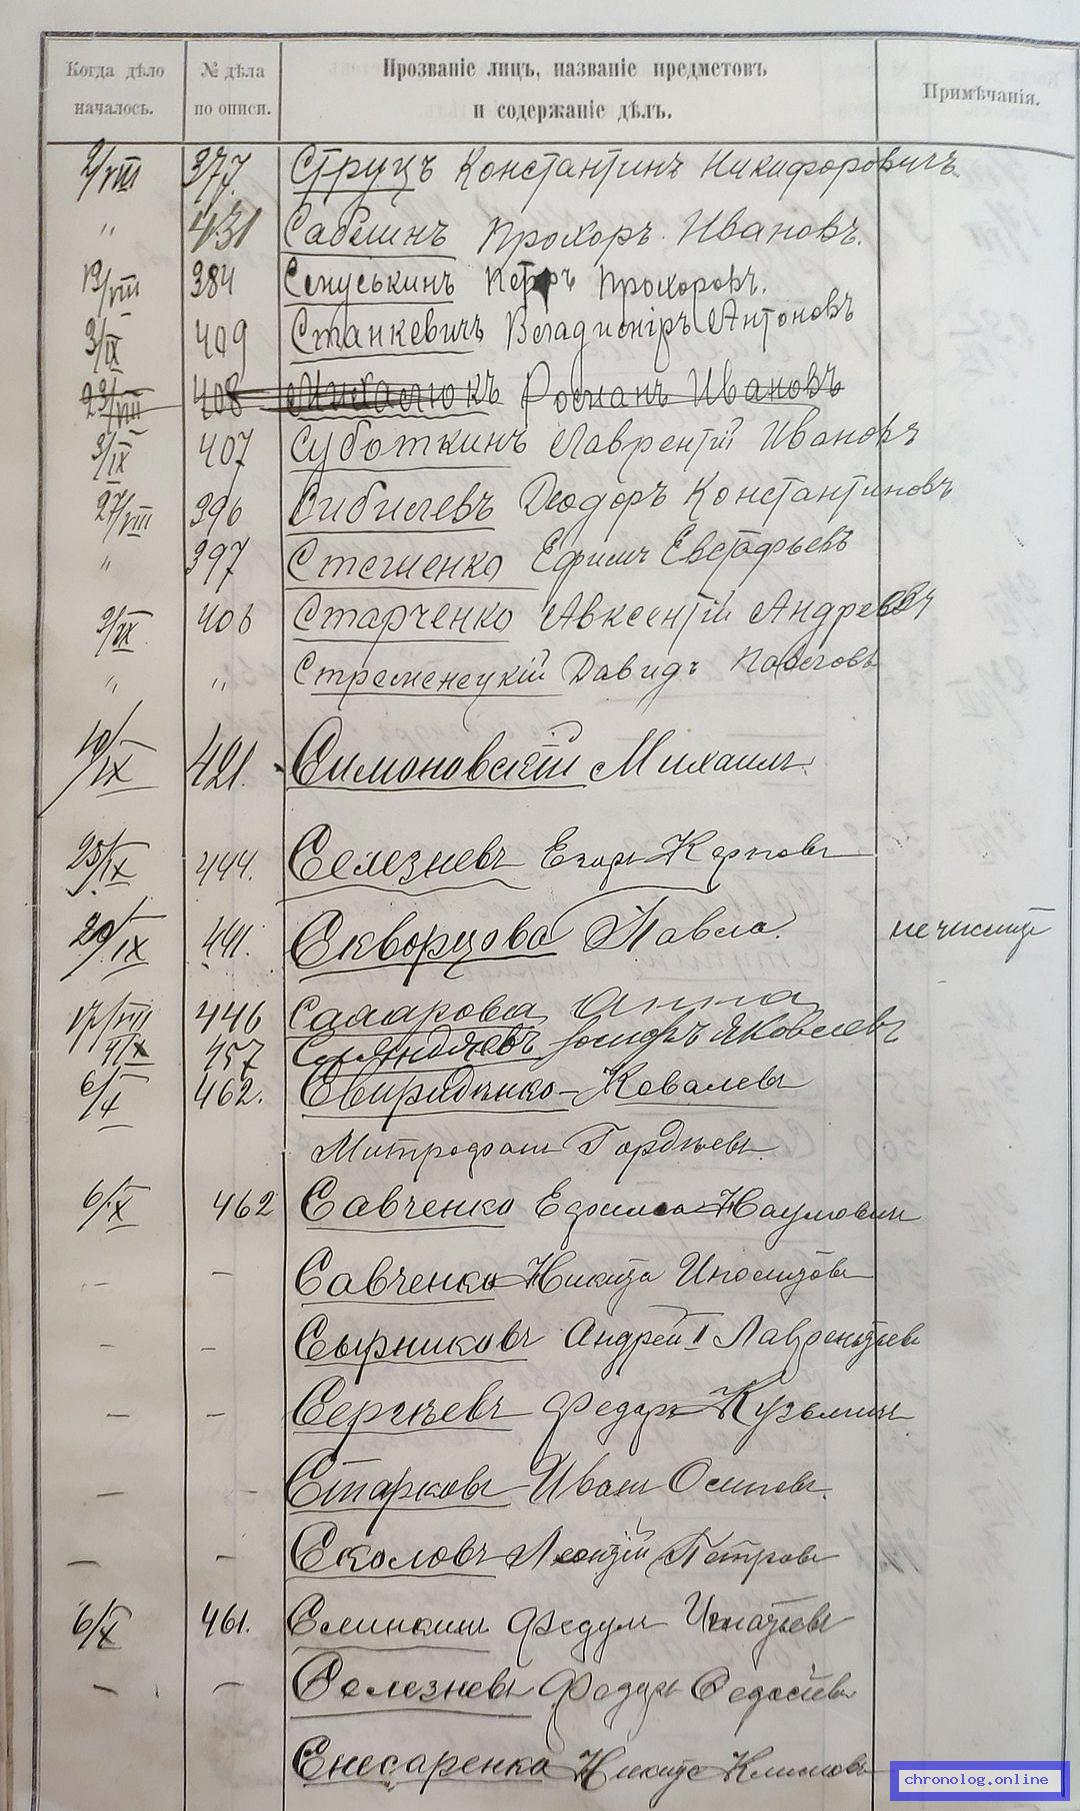 Когда дѣло началось. № дѣла по описи. Прозваніе лицъ, названіе предметовъ и содержаніе дѣлъ. Примѣчанія.
2/VIII 377. Струцъ Константинъ Никифоровичъ.
" 431 Саблинъ Прохоръ Ивановъ.
384 Петръ Прохоровъ.
3/IX 409 Станкевичъ Владиміръ Антоновъ
23/VIII 408 Михалюкъ Романъ Ивановъ
3/IX 407 Субботкинъ Лаврентій Ивановъ
27/VIII 396 Сибилевъ Ѳеодоръ Константиновъ
" 397 Стешенко Ефимъ Евстафьевъ
406 Старченко Авксентій Андреевъ
" " Стременецкій Давидъ Павловъ
10/IX 421. Симоновскій Михаилъ.
25/IX 444. Селезневъ Егоръ Карповъ
29/IX 441. Скворцова Павла.
17/VIII 446 Самарова Анна
4/X 457 Іосифъ Яковлевъ
6/X 462. Свириденко-Ковалевъ
Митрофанъ Гордѣевъ.
6/X 462 Савченко Ефимъ Наумовичъ
— — Савченко Никита Иполитовъ
— — Сырниковъ Андрей I Лаврентьевъ
— — Сергѣевъ Федоръ Кузьмичъ
— — Старковъ Иванъ Осиповъ.
— — Соколовъ Леонтій Петровъ
6/X 461. Слинкинъ Федулъ Игнатьевъ
— — Селезневъ Федоръ Федосѣевъ
Снесаренко Никита Климовъ
chronolog.online